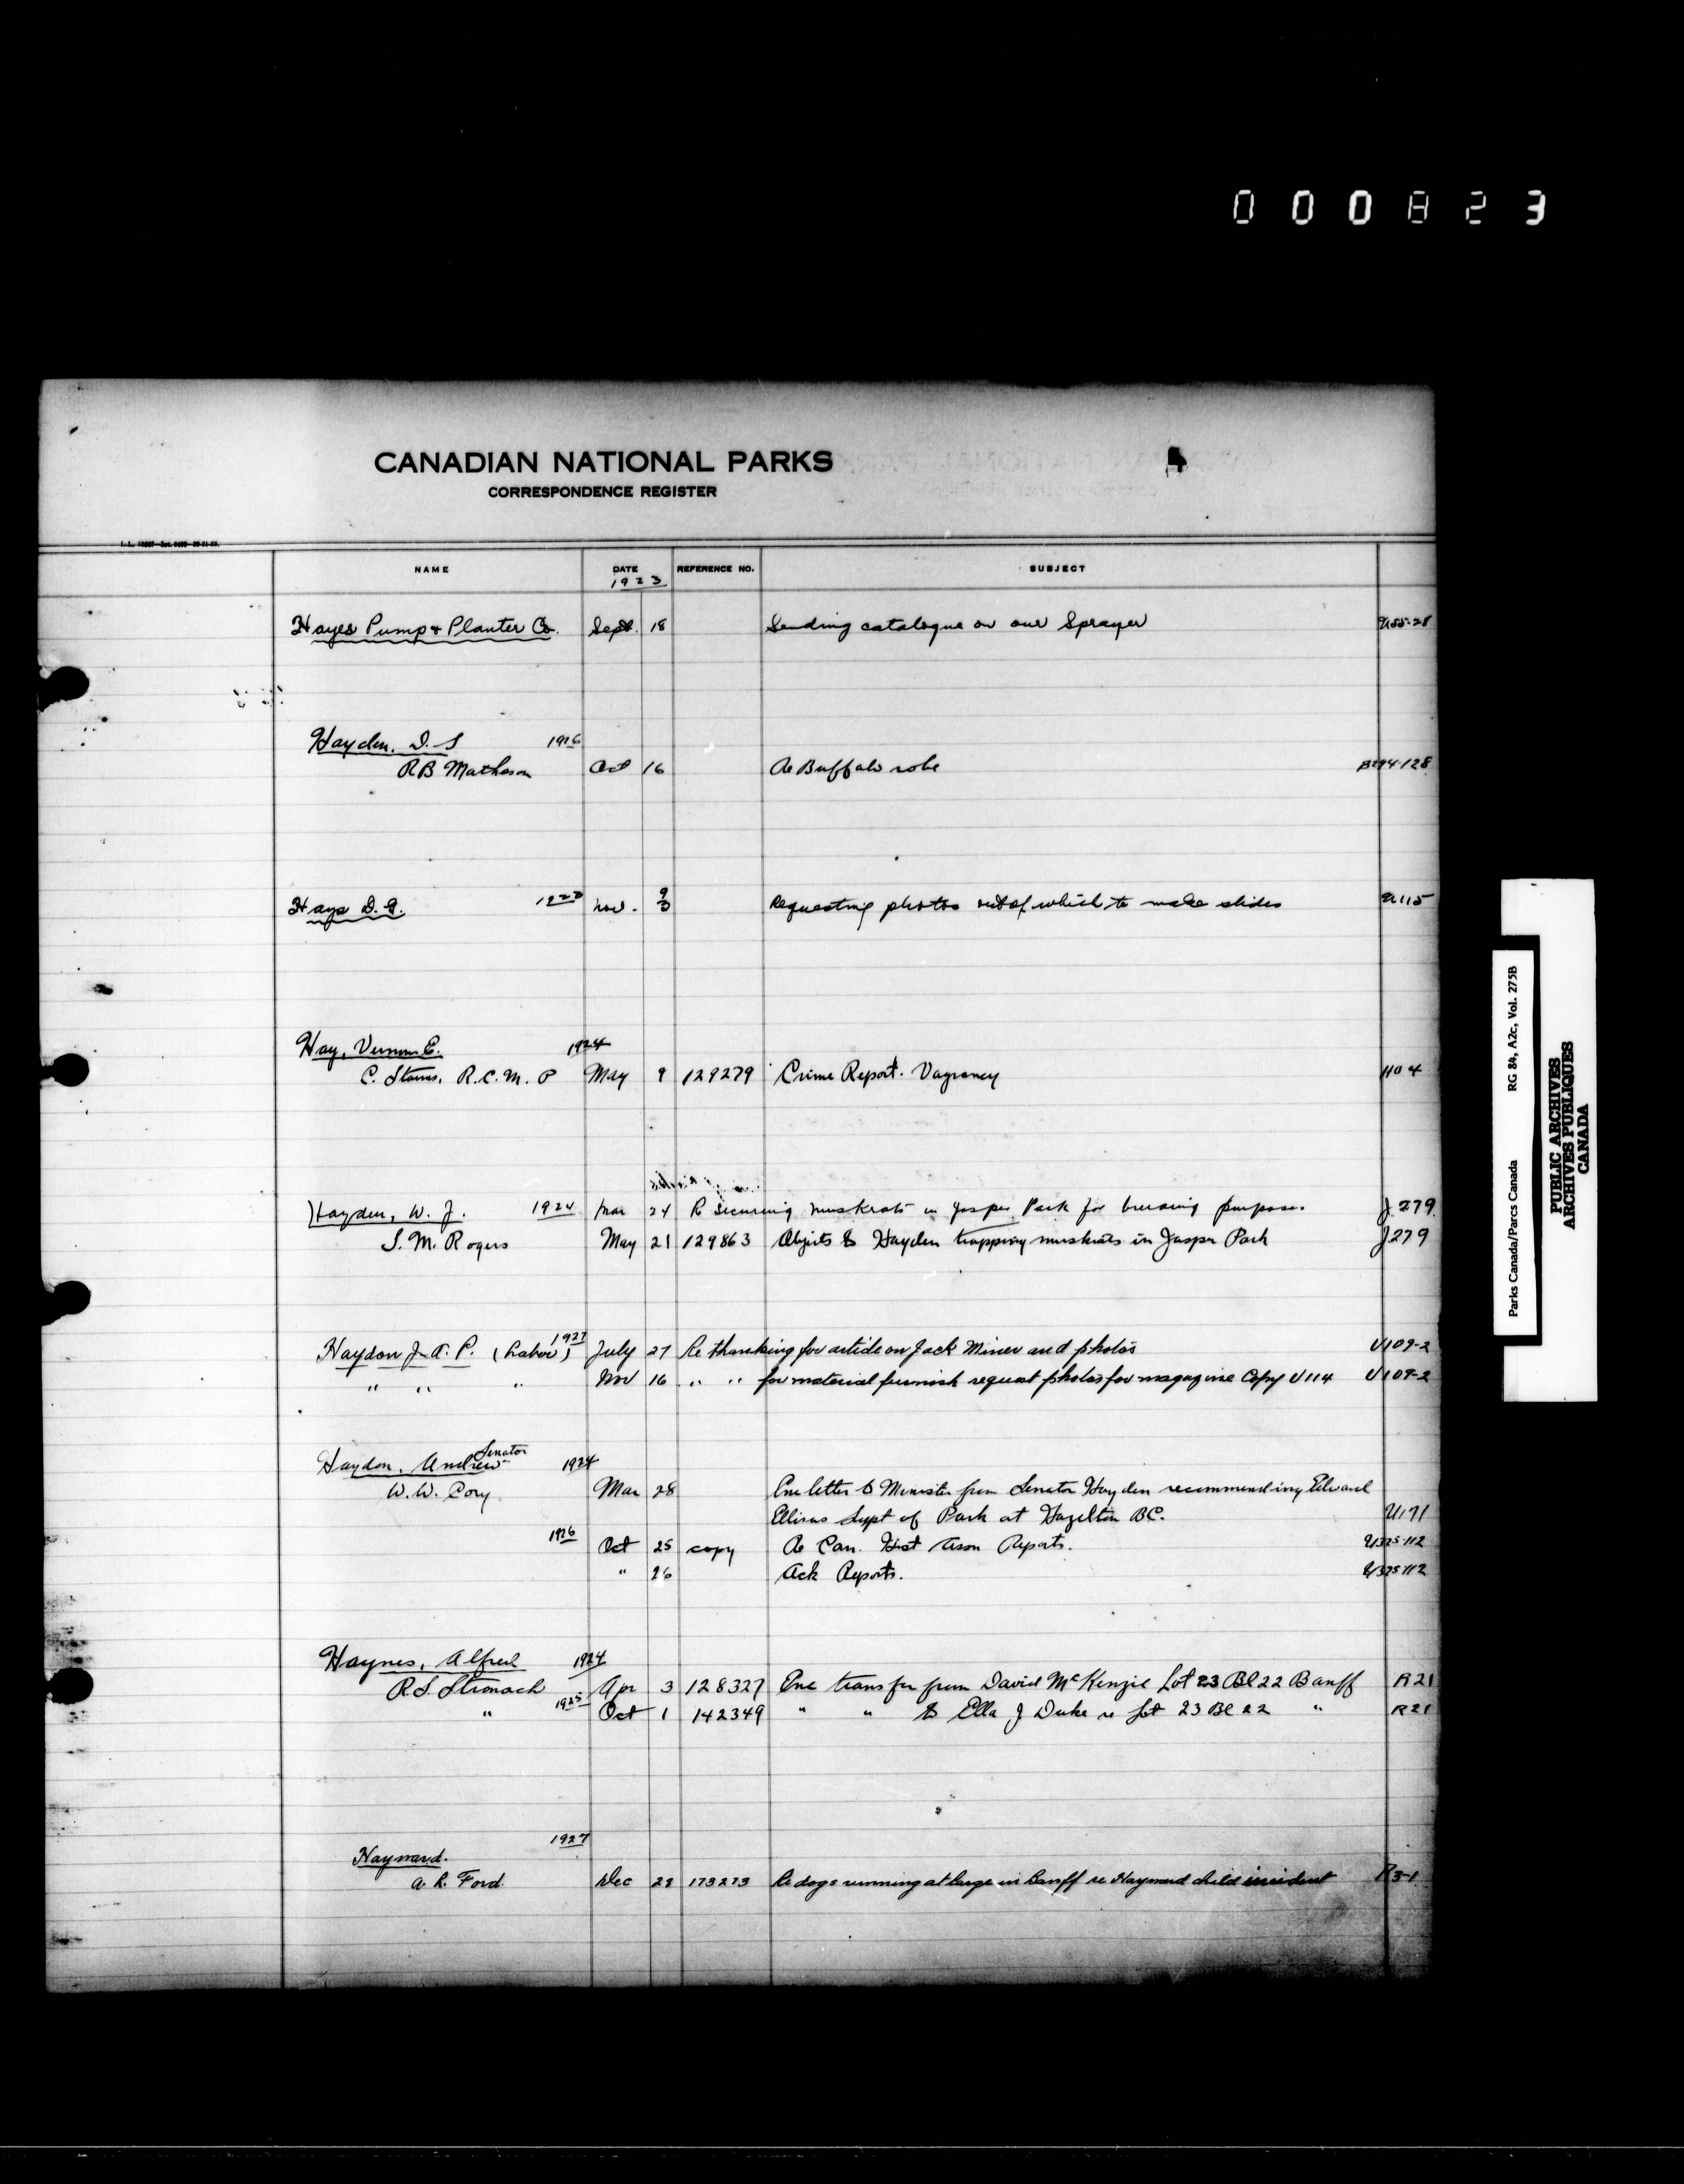 000823
CANADIAN NATIONAL PARKS
CORRESPONDENCE REGISTER
NAME DATE REFERENCE NO. SUBJECT
1923
Hayes Pump & Planter Co. Sept. 18 Sending catalogue on our Sprayer U55-28
Hayden, D. S 1926
R B Matheson Oct 16 Re Buffalo robe B294-128
Hays D. G. 1923 Nov. Requesting photos out of which to make slides U115
Hay, Vernon E. 1924
C. Starnes, R.C.M.P May 9 129279 Crime Report. Vagrancy
Hayden, W. J. 1924 Mar 24 R securing muskrats in Jasper Park for breeding purposes. J.279
S. M. Rogers May 21 129863 Objects to Hayden trapping muskrats in Jasper Park J279
Haydon J. A. P. (Labor) 1927 July 27 Re thanking for article on Jack Miner and photos U109-2
" " " Nov 16 " " for material furnish request photos for magazine Copy U114 U109-2
Haydon, Andrew Senator 1924
W. W. Cory Mar 28 Enc letter to Minister from Senator Hayden recommending Edward
Ellis as Supt of Park at Hazelton BC. U171
1926 Oct 25 copy Re Can. Hist Assn Reports. U325-112
" 26 Ack Reports. U325-112
Haynes, Alfred 1924
R. S. Stronach Apr 3 128327 Enc transfer from David McKenzie Lot 23 Bl 22 Banff R21
" 1925 Oct 1 142349 " " to Ella J Duke re Lot 23 Bl 22 " R21
Hayward. 1927
A. R. Ford. Dec 28 173273 Re dogs running at large in Banff re Hayward child incident R3-1
Parks Canada/Parcs Canada RG 84, A2c, Vol. 275B
PUBLIC ARCHIVES
ARCHIVES PUBLIQUES
CANADA